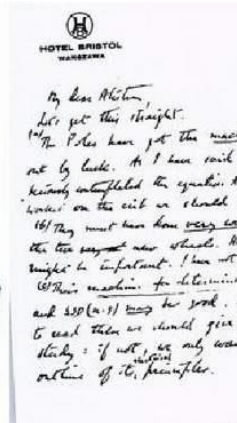 HOTEL BRISTOL
WARSZAWA
My dear Alastair,
Let's get this straight.
(a) The Poles have got the mac
out by luck. As I have said
seriously contemplated the equation. A
worked on the crib we should
(b) They must have done very we
the two new wheels.
might be important. I have not
(c) Their machine for determin
and SSD (n.g) may be good.
to read these we should give
study: if not, we only wan
outline of its principles.